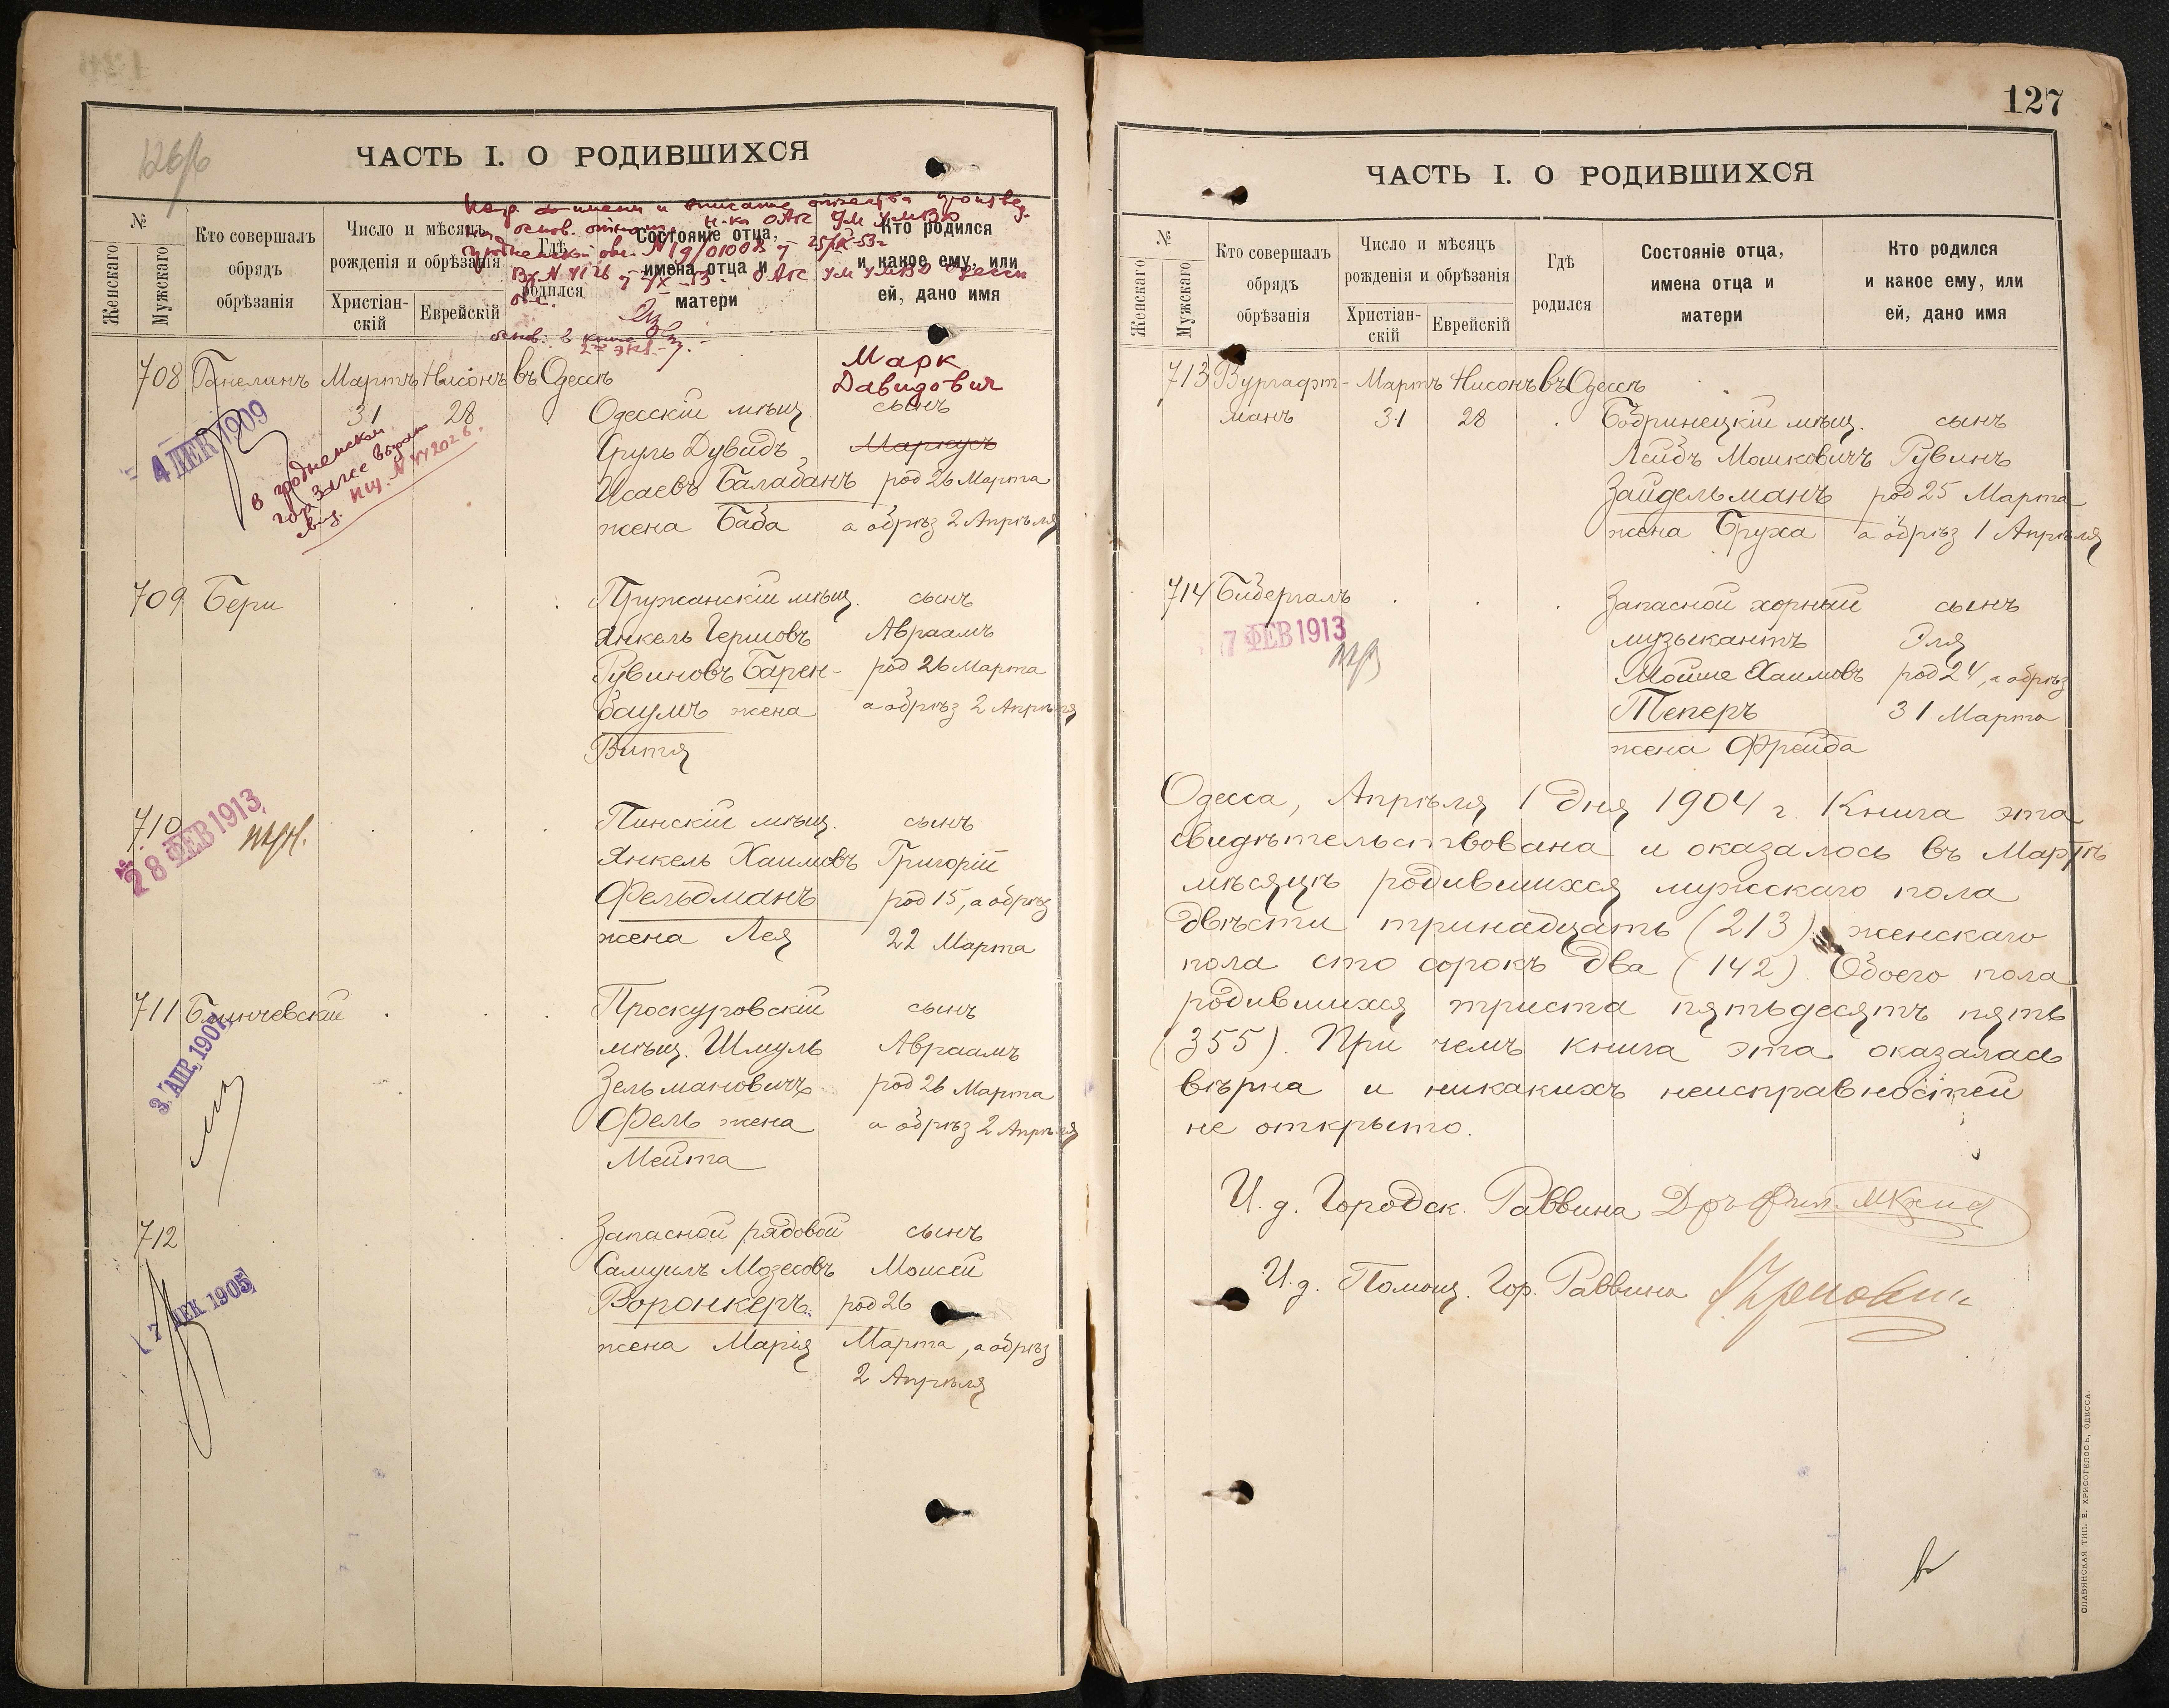 ЧАСТЬ I. О РОДИВШИХСЯ
№
Женскаго
Мужскаго
Кто совершалъ
обрядъ
обрѣзанія
Число и мѣсяцъ
рожденія и обрѣзанія
Христіан-
скій
Еврейскій
Гдѣ
родился
Состояніе отца,
имена отца и
матери
Кто родился
и какое ему, или
ей, дано имя
708 Мартъ Нисонъ въ Одессѣ
Марк
Давидович
31 28 Одесскій мѣщ. сынъ
Сруль Дувидъ Маркусъ
Исаевъ Балабанъ род 26 Марта
жена Баба а обрѣз 2 Апрѣля
4 ДЕК 1909
709 Бери Пружанскій мѣщ. сынъ
Янкель Гершовъ Авраамъ
Рувиновъ Барен- род 26 Марта
баумъ жена а обрѣз 2 Апрѣля
Витя
710 Пинскій мѣщ. сынъ
28 ФЕВ 1913
Янкель Хаимовъ Григорій
Фельдманъ род 15, а обрѣз
жена Лея 22 Марта
711 Блинчевскій Проскуровскій сынъ
3 АПР. 1907
мѣщ. Шмуль Авраамъ
Зельмановичъ род 26 Марта
Фель жена а обрѣз 2 Апрѣля
Мейта
712 Запасной рядовой сынъ
7 ДЕК 1905
Самуилъ Мозесовъ Моисей
Воронкеръ род 26
жена Марія Марта, а обрѣз
2 Апрѣля
127
ЧАСТЬ I. О РОДИВШИХСЯ
№
Женскаго
Мужскаго
Кто совершалъ
обрядъ
обрѣзанія
Число и мѣсяцъ
рожденія и обрѣзанія
Христіан-
скій
Еврейскій
Гдѣ
родился
Состояніе отца,
имена отца и
матери
Кто родился
и какое ему, или
ей, дано имя
713 Вургафт- Мартъ Нисонъ въ Одессѣ
манъ 31 28 Бобринецкій мѣщ. сынъ
Лейбъ Мошковичъ Рувинъ
Зайдельманъ род 25 Марта
жена Бруха а обрѣз 1 Апрѣля
714 Бидергалъ Запасной хорный сынъ
7 ФЕВ 1913
музыкантъ Эля
Мойше Хаимовъ род 24, а обрѣз
Теперъ 31 Марта
жена Фрейда
Одесса, Апрѣля 1 дня 1904 г. Книга эта
свидѣтельствована и оказалось въ Мартѣ
мѣсяцѣ родившихся мужскаго пола
двѣсти тринадцать (213) женскаго
пола сто сорокъ два (142). Обоего пола
родившихся триста пятьдесятъ пять
(355). При чемъ книга эта оказалась
вѣрна и никакихъ неисправностей
не открыто.
И. д. Городск. Раввина
И. д. Помощ. Гор. Раввина
СЛАВЯНСКАЯ ТИП. Е. ХРИСОГЕЛОСЪ, ОДЕССА.